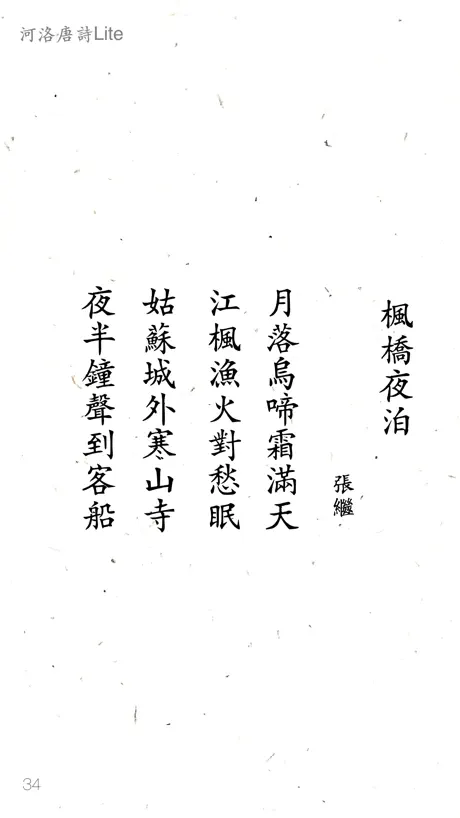 河洛唐詩Lite
楓橋夜泊
張繼
月落烏啼霜滿天
江楓漁火對愁眠
姑蘇城外寒山寺
夜半鐘聲到客船
34